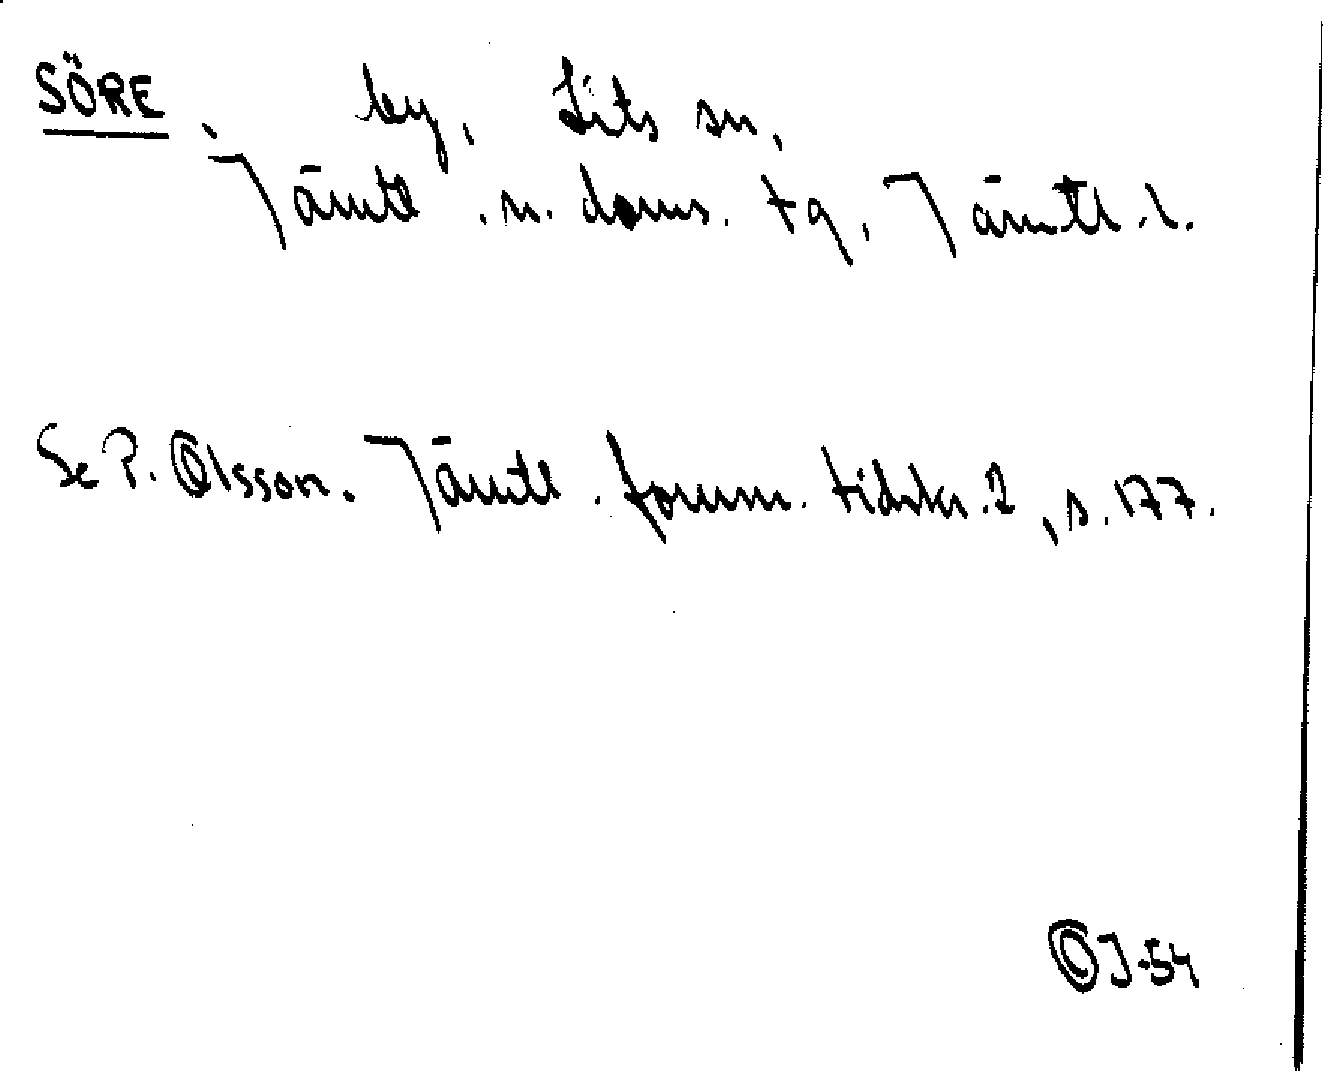 SÖRE, by, Lits sn,
Jämtl. n. doms. tg, Jämtl. l.
Se P. Olsson. Jämtl. fornm. tidskr. 2, s. 177.
OJ-54